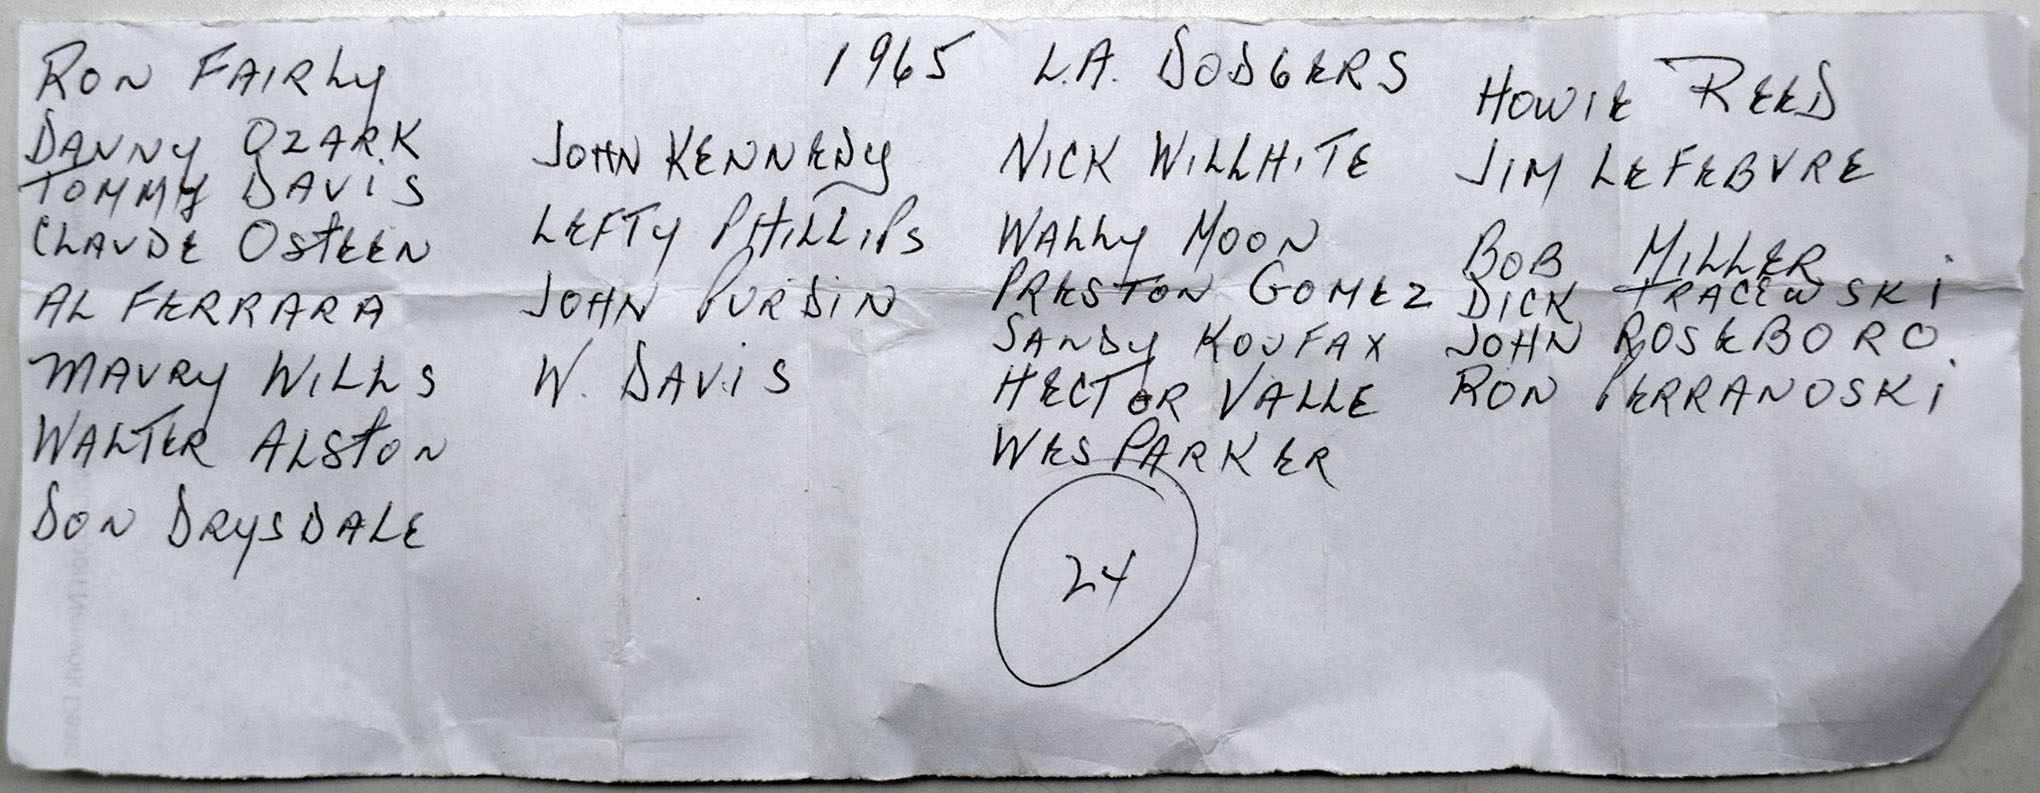 1965 L.A. DODGERS
RON FAIRLY
DANNY OZARK
TOMMY DAVIS
CLAUDE OSTEEN
AL FERRARA
MAURY WILLS
WALTER ALSTON
DON DRYSDALE
JOHN KENNEDY
LEFTY PHILLIPS
JOHN PURDIN
W. DAVIS
NICK WILLHITE
WALLY MOON
PRESTON GOMEZ
SANDY KOUFAX
HECTOR VALLE
WES PARKER
24
HOWIE REED
JIM LEFEBVRE
BOB MILLER
DICK TRACEWSKI
JOHN ROSEBORO.
RON PERRANOSKI